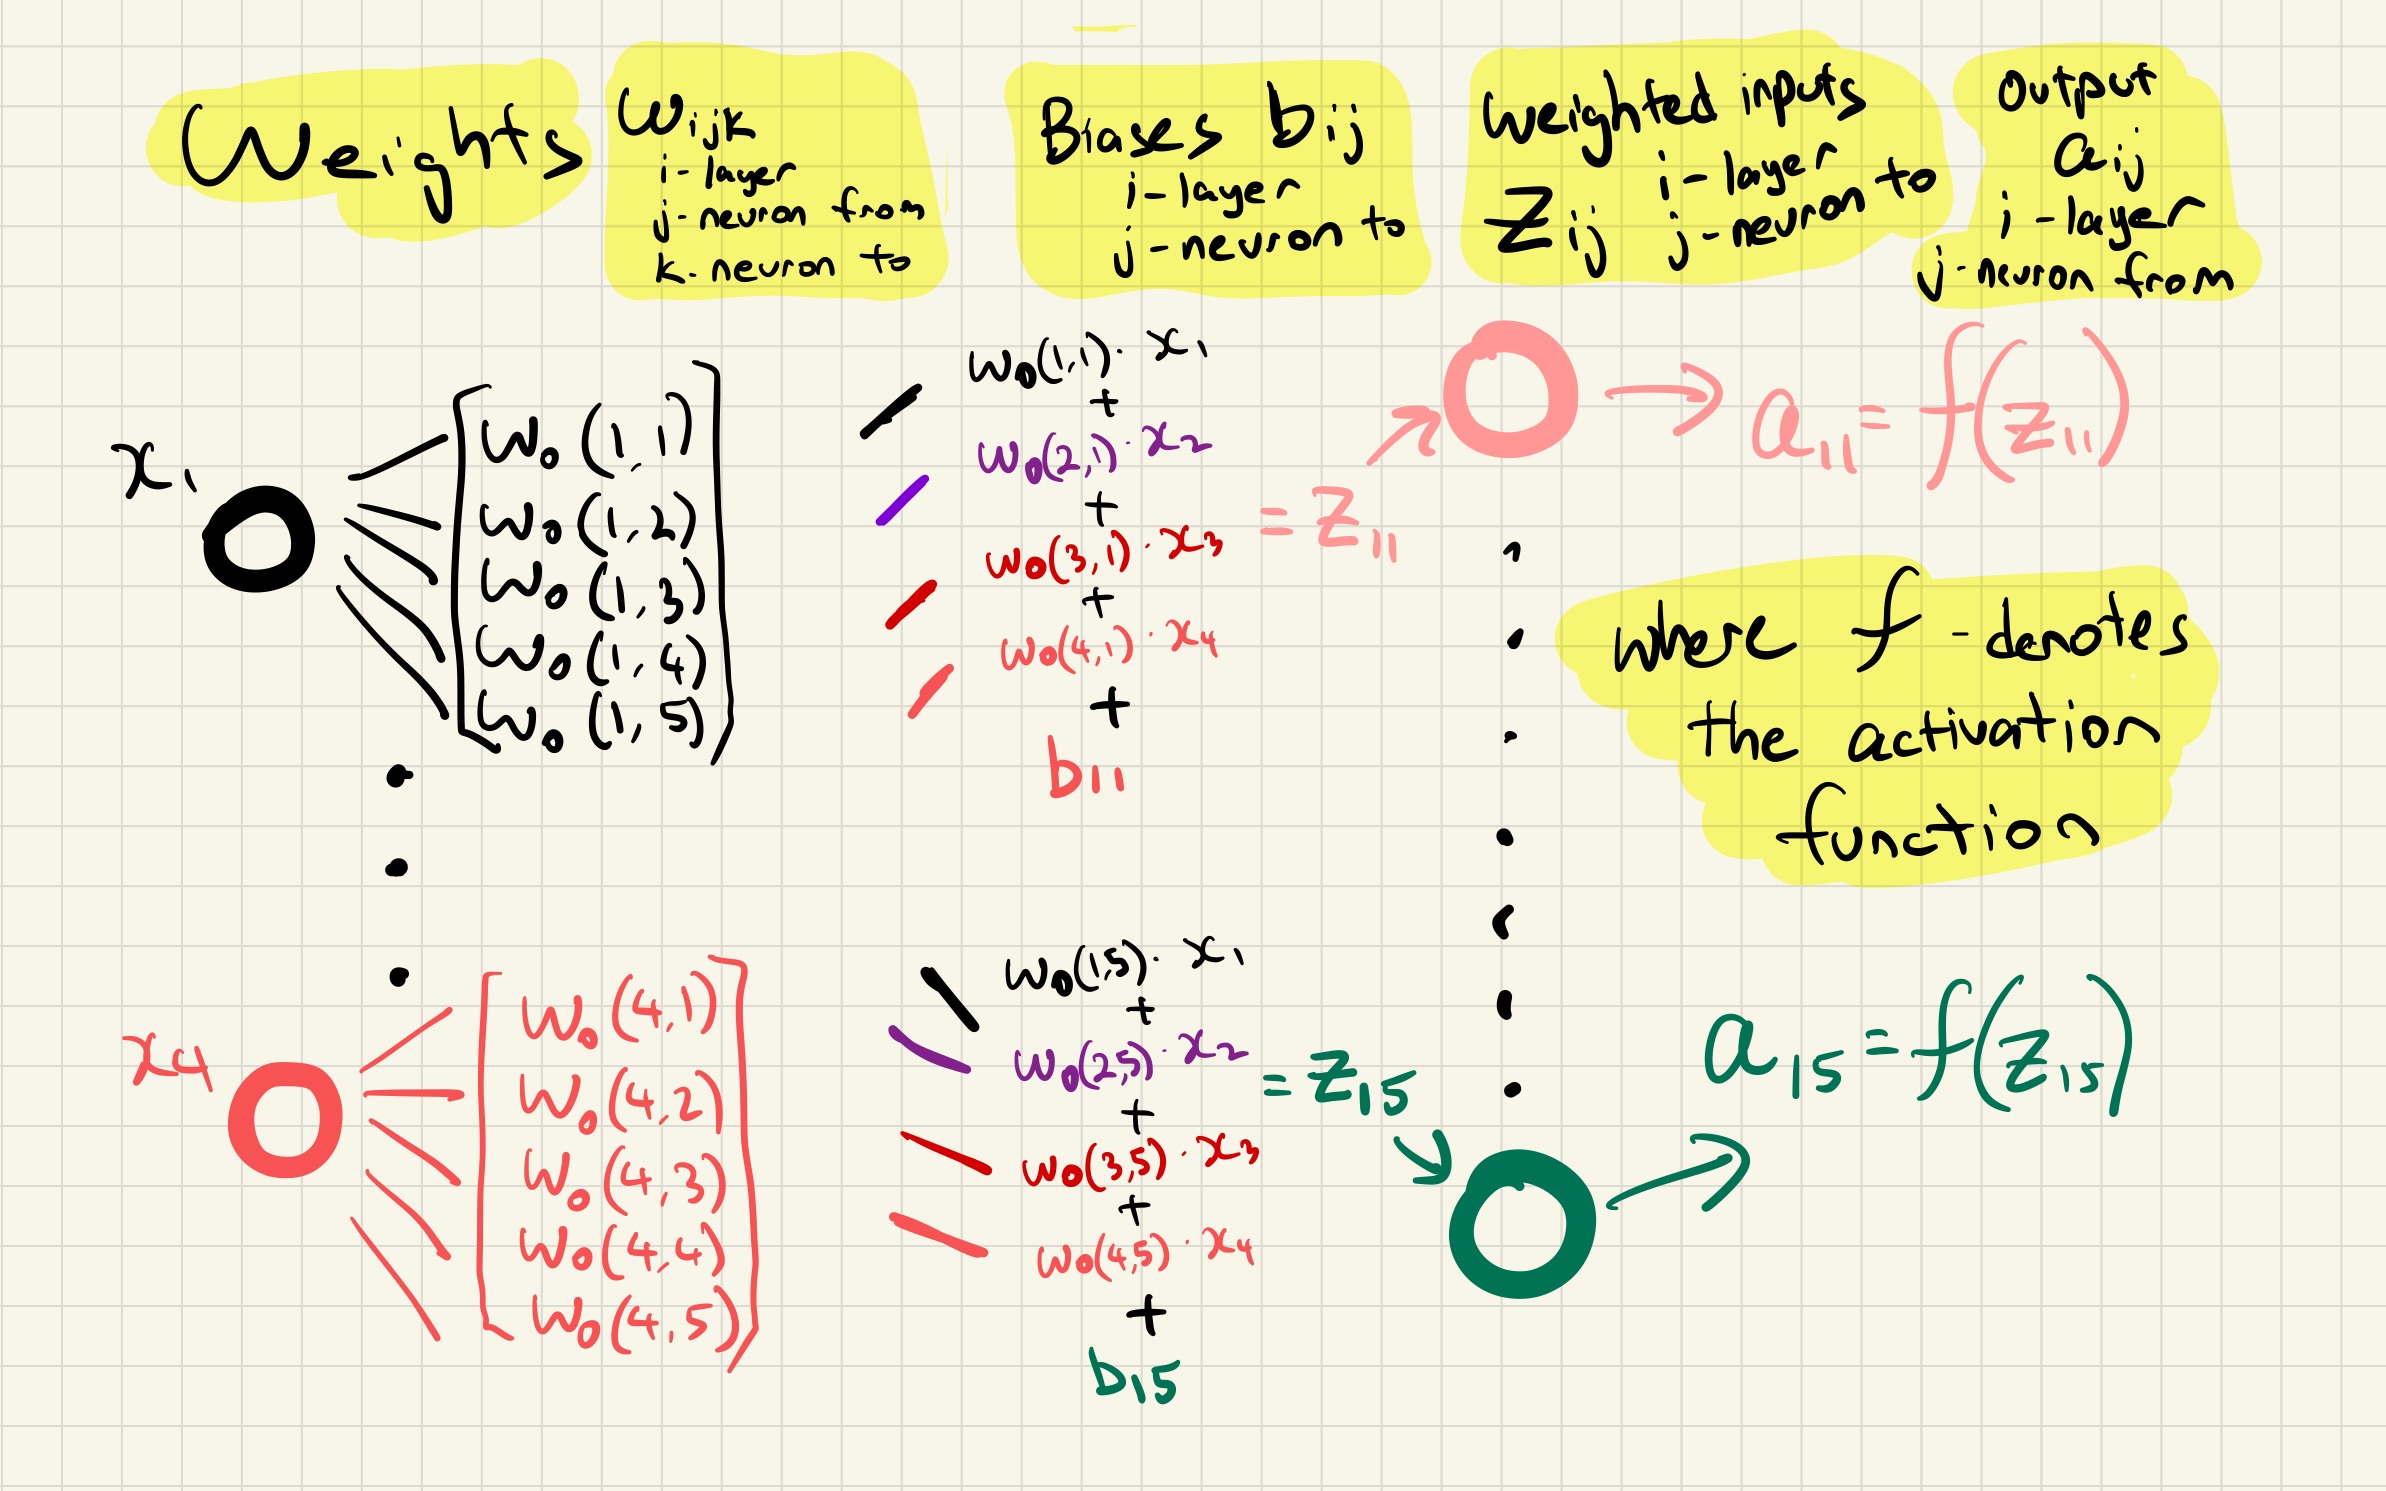 Weights
Wijk
i-layer
j-neuron from
k-neuron to
Biases bij
i-layer
j-neuron to
weighted inputs
zij
i-layer
j-neuron to
output
aij
i-layer
j-neuron from
x1
[w0(1,1)
w0(1,2)
w0(1,3)
w0(1,4)
w0(1,5)]
w0(1,1)·x1
+
w0(2,1)·x2
+
w0(3,1)·x3
+
w0(4,1)·x4
+
b11
= z11
a11 = f(z11)
where f - denotes
the activation
function
x4
[w0(4,1)
w0(4,2)
w0(4,3)
w0(4,4)
w0(4,5)]
w0(1,5)·x1
+
w0(2,5)·x2
+
w0(3,5)·x3
+
w0(4,5)·x4
+
b15
= z15
a15 = f(z15)